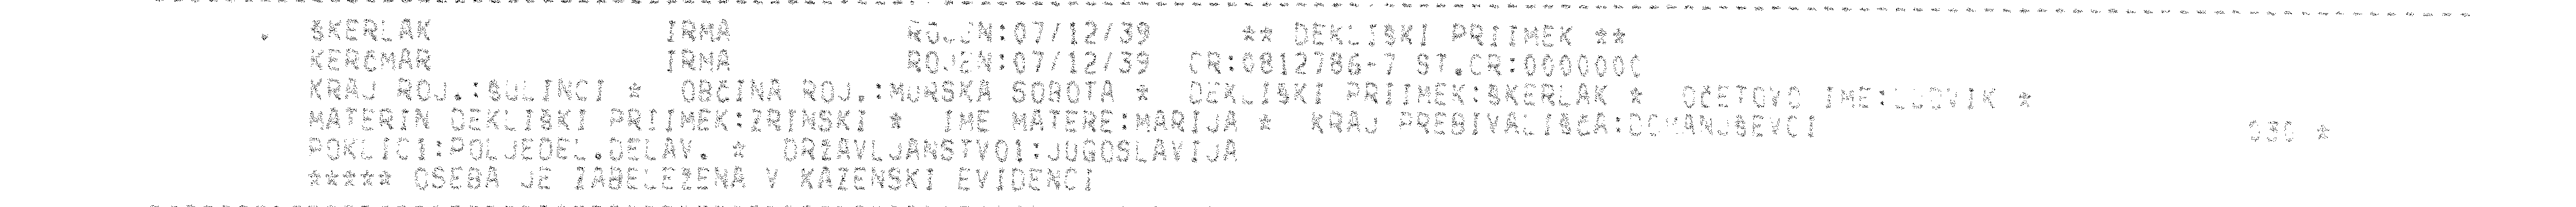 ŠKERLAK IRMA ROJEN:07/12/39 ** DEKLIŠKI PRIIMEK **
KERČMAR IRMA ROJEN:07/12/39 CR:0812786-7 ST.CR:000000C
KRAJ ROJ.:ŠULINCI * OBČINA ROJ.:MURSKA SOBOTA * DEKLIŠKI PRIIMEK:ŠKERLAK * OČETOVO IME:LUDVIK *
MATERIN DEKLIŠKI PRIIMEK:ZRINSKI * IME MATERE:MARIJA * KRAJ PREBIVALIŠČA:DOMANJŠEVCI 030 *
POKLICI:POLJEDEL.DELAV. * DRŽAVLJANSTVO1:JUGOSLAVIJA
***** OSEBA JE ZABELEŽENA V KAZENSKI EVIDENCI